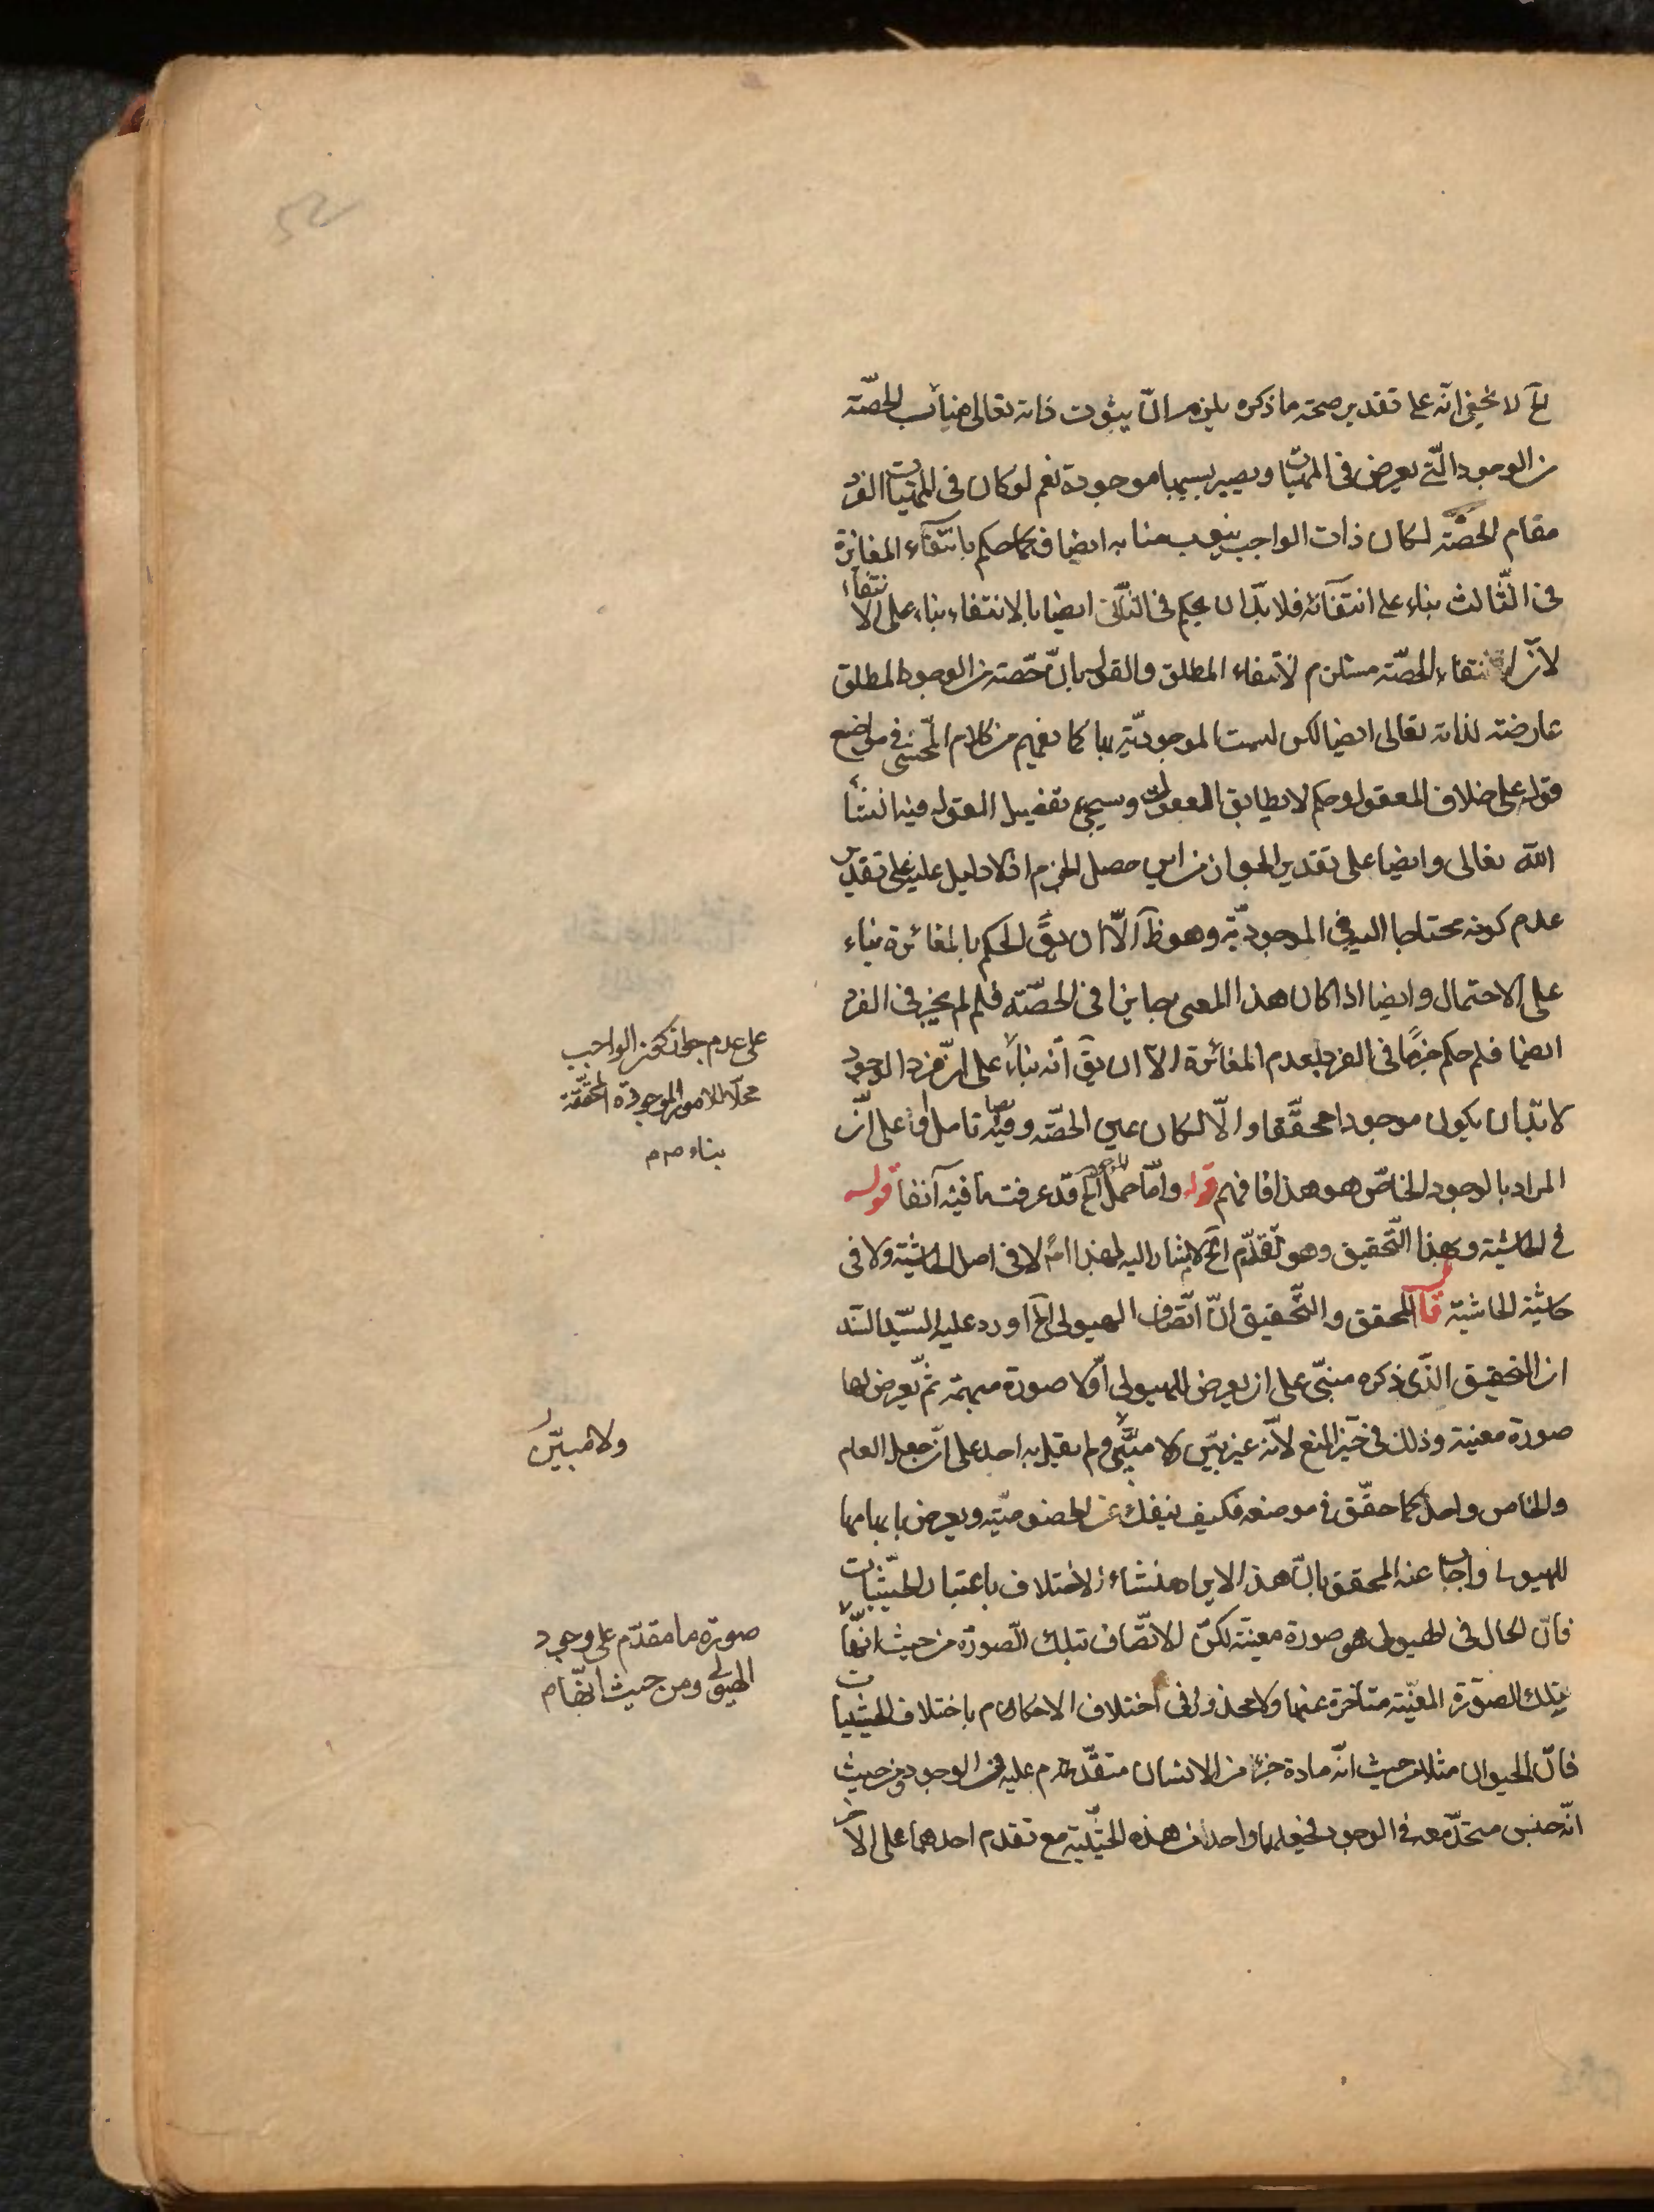 لا يخفى انّه على تقدير صحة ما ذكره يلزم انّ ينوب ذاته تعالى مناب الحصّة
من الوجود الّتي يعرض في الممكنات ويصير بسببها موجودة نعم لو كان في الممكنات الفرد
مقام الحصّة لكان ذات الواجب ينوب منابه ايضا فكما حكم بانتفآء المغائرة
في الثّالث بناء على انتفآئه فلا بدّ ان يحكم في الثّاني ايضا بالانتفاء بناء على الانتفاء
لانّ انتفاء الحصّة مستلزم لانتفاء المطلق والقول بانّ حصّة من الوجود المطلق
عارضة لذاته تعالى ايضا لكن ليست الموجوديّة بها كما يفهم من كلام المحشّي في مواضع
قول على خلاف المعقول وحكم لا يطابق المعقول وسيجئ تفصيل القول فيه انشأ
الله تعالى وايضا على تقدير الجواز من اين حصل الجزم اذ لا دليل عليه على تقدير
عدم كونه محتاجا اليه في الموجوديّة وهو ظ الّا ان يقَ الحكم بالمغائرة بناء
على الاحتمال وايضا اذا كان هذا المعنى جايزا في الحصّة فلم لم يجز في الفرد
ايضا فلم حكم جزمًا في الفرد بعدم المغائرة الّا ان يقَ انّه بناءً على انّ فرد الوجود
لا بدّ ان يكون موجودا محقّقا والّا لكان عين الحصّة وفيه ايضا تامل على انّ
المراد بالوجود الخاصّ هو هذا فافهم قوله وامّا حمل الخ قد عرفت ما فيه آنفا قوله
في الحاشية وبهذا التّحقيق وهو تقدّم الخ لا يشار اليه بهذا لا في اصل الحاشية ولا في
حاشية الحاشية قال المحقق والتّحقيق انّ اتّصاف الهيولى الخ اورد عليه السّيد السّند
ان التحقيق الّذي ذكره مبنيّ على ان يعرض للهيولى اوّلا صورة مبهمة ثمّ يعرض لها
صورة معينة وذلك في حيّز المنع لانّه غير بيّن ولا مبيّن ولم يقل به احد على انّ جعل العام
والخاص واحد كما حقّق في موضعه فكيف ينفك عن الخصوصيّة ويعرض بابهامها
للهيولى واجاب عنه المحقق بانّ هذا الايراد منشاءه الاختلاف باعتبار الحيثيّات
فانّ الحال في الهيولى هو صورة معينة لكنّ الاتّصاف بتلك الصّورة من حيث انّها
بتلك الصّورة المعيّنة متاخرة عنها ولا محذور في اختلاف الاحكام باختلاف الحيثيات
فانّ الحيوان مثلا من حيث انّه مادة جزء من الانسان متقدّم عليه في الوجود ومن حيث
انّه جنس متحدّ معه في الوجود فجعلهما واحد من هذه الحيثيّة مع تقدم احدهما على الآخر
على عدم جواز كون الواجب
محلا للامور الموجودة المحقّقة
بناء صم
ولا مبيّن
صورة ما مقدّم على وجود
الهيولى ومن حيث انّها م